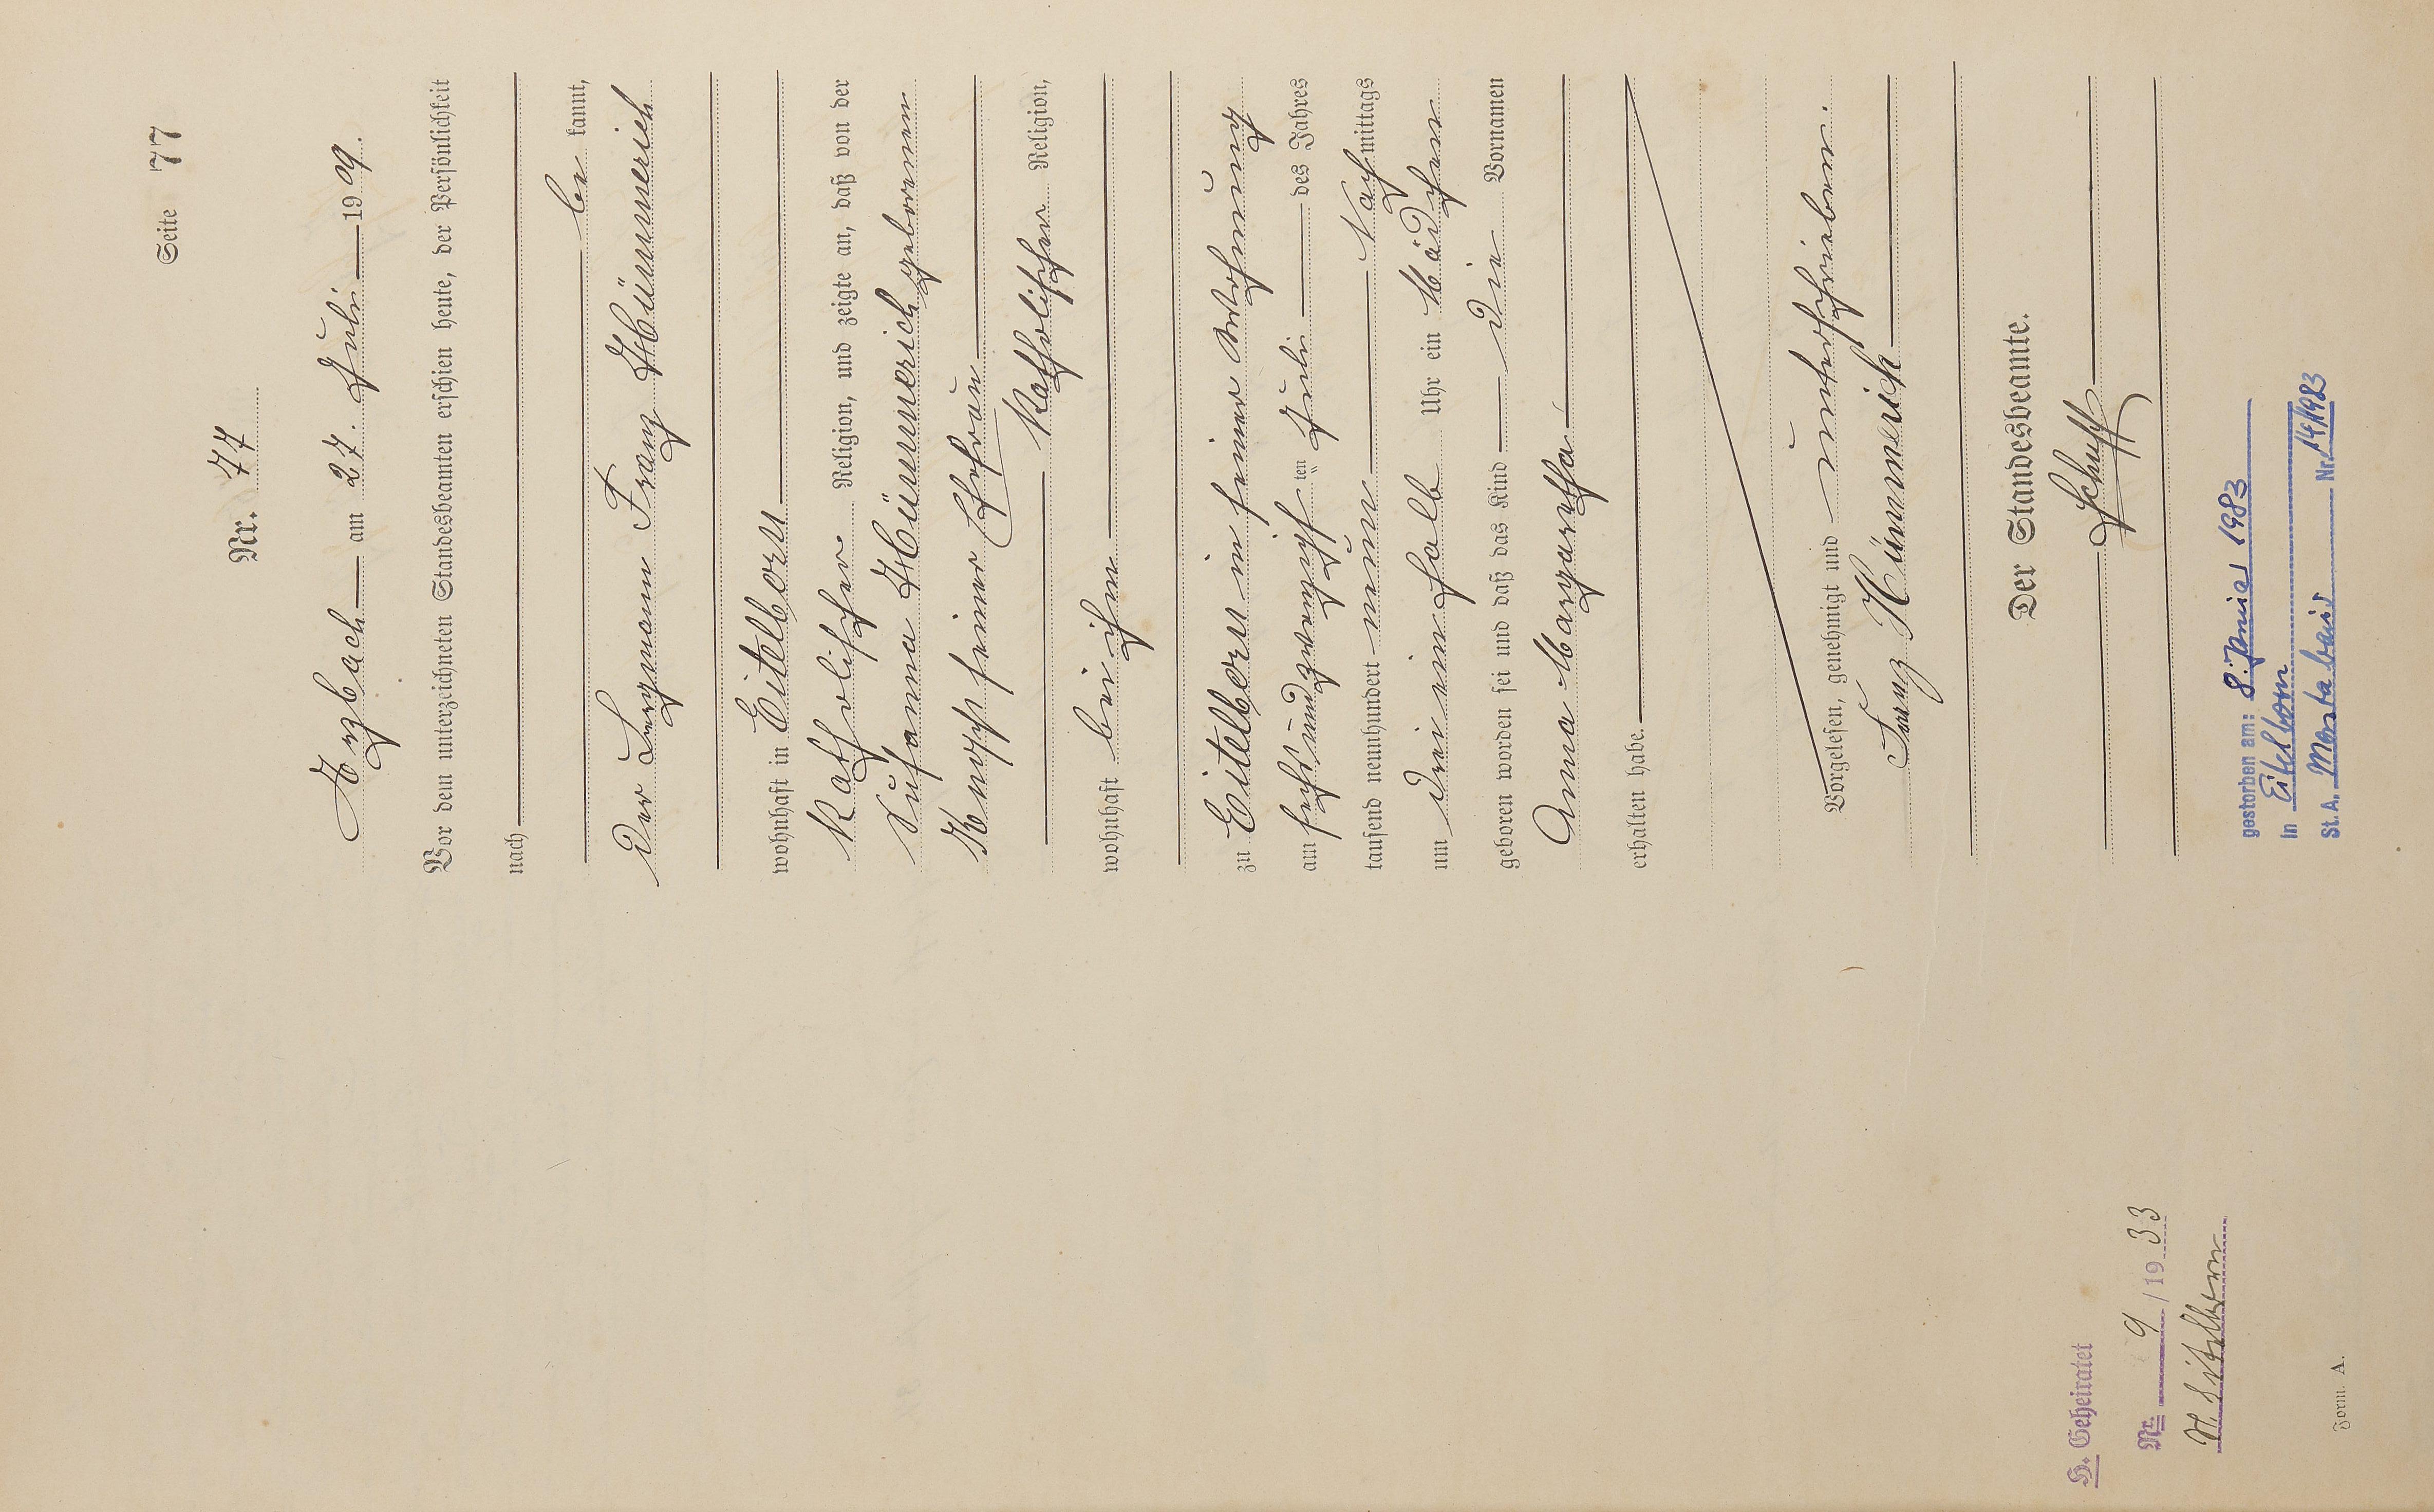 Seite 77
Nr. 77
Arzbach am 27. Juli 1909.
Vor dem unterzeichneten Standesbeamten erschien heute, der Persönlichkeit
nach
be kannt,
der Bergmann Franz Hümmerich
wohnhaft in Eitelborn
katholischer Religion, und zeigte an, daß von der
Susanna Hümmerich geborenen
Knopp seiner Ehefrau
katholischer Religion,
wohnhaft bei ihm
zu Eitelborn in seiner Wohnung
am sechsundzwanzigsten Juli des Jahres
tausend neunhundert neun Nachmittags
um drei ein halb Uhr ein Mädchen
geboren worden sei und daß das Kind die Vornamen
Anna Margaretha
erhalten habe.
Vorgelesen, genehmigt und unterschrieben.
Franz Hümmerich
Der Standesbeamte.
Schupp
gestorben am: 8. Januar 1983
in Eitelborn
St. A. Montabaur Nr. 14/1983
H. Geheiratet
Nr. 9/1933
St. Eitelborn
Form. A.